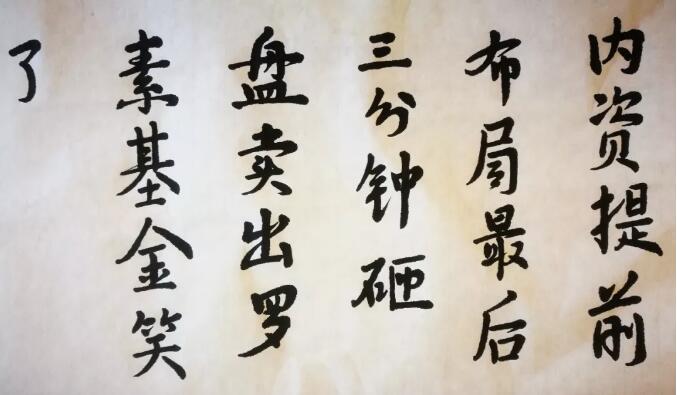 内资提前
布局最后
三分钟砸
盘卖出罗
素基金笑
了